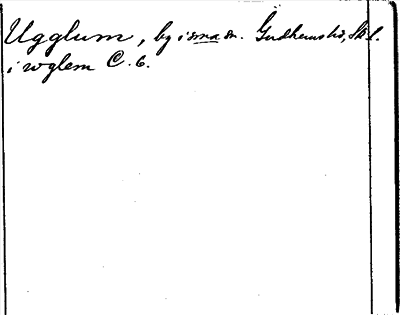 Ugglum, by i sma sn. Gudhems hd, Skl.
i wglem C. 6.